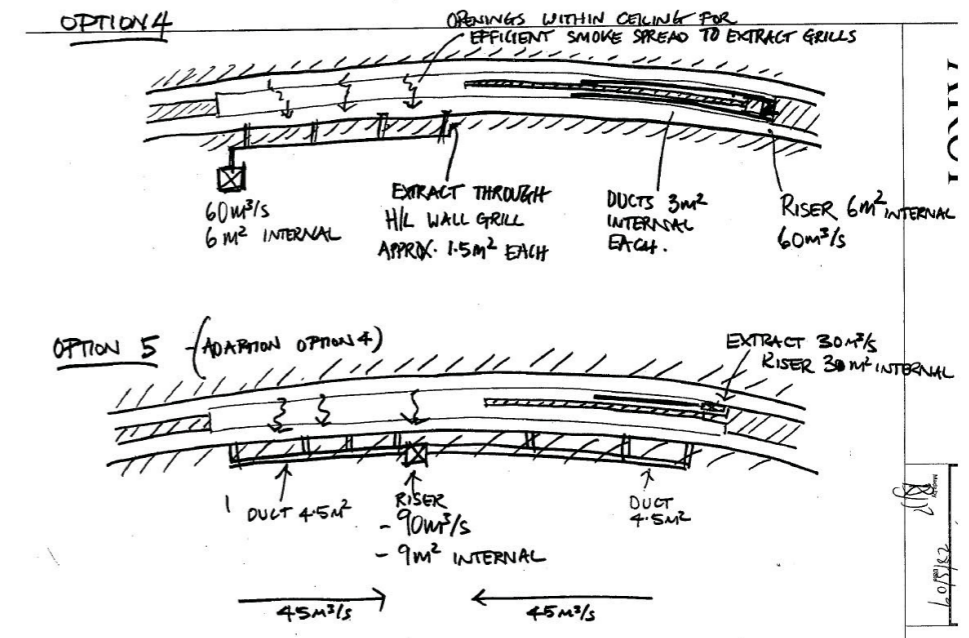 OPTION 4
OPENINGS WITHIN CEILING FOR
EFFICIENT SMOKE SPREAD TO EXTRACT GRILLS
60m³/s
6m² INTERNAL
EXTRACT THROUGH
H/L WALL GRILL
APPROX. 1.5m² EACH
DUCTS 3m²
INTERNAL
EACH.
RISER 6m² INTERNAL
60m³/s
OPTION 5 - (ADAPTION OPTION 4)
EXTRACT 30m³/s
RISER 30m² INTERNAL
DUCT 4.5m²
RISER
- 90m³/s
- 9m² INTERNAL
DUCT
4.5m²
45m³/s
45m³/s